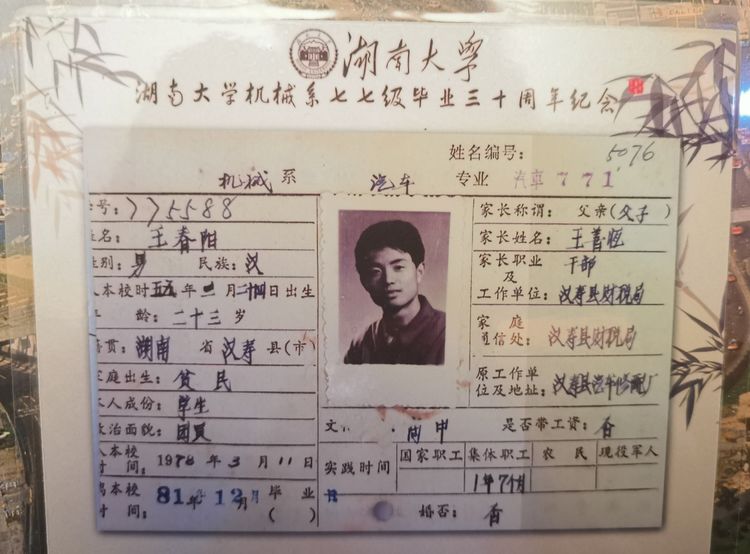 湖南大学
湖南大学机械系七七级毕业三十周年纪念
姓名编号: 5076
机械 系 汽车 专业 汽车771
号: 775588
姓名: 王春阳
性别: 男 民族: 汉
年 月 日出生
年 龄: 二十三 岁
籍贯: 湖南 省 汉寿 县(市)
家庭出生: 贫民
本人成份: 学生
政治面貌: 团员
入本校时间: 1978 年 3 月 11 日
离本校时间: 81年 12月 毕业 ( )
家长称谓: 父亲(父子)
家长姓名: 王善恒
家长职业及工作单位: 干部 汉寿县财税局
家庭通信处: 汉寿县财税局
原工作单位及地址: 汉寿县汽车修配厂
文 高中 是否带工资: 否
实践时间 国家职工 集体职工 农民 现役军人
1年7个月
婚否: 否